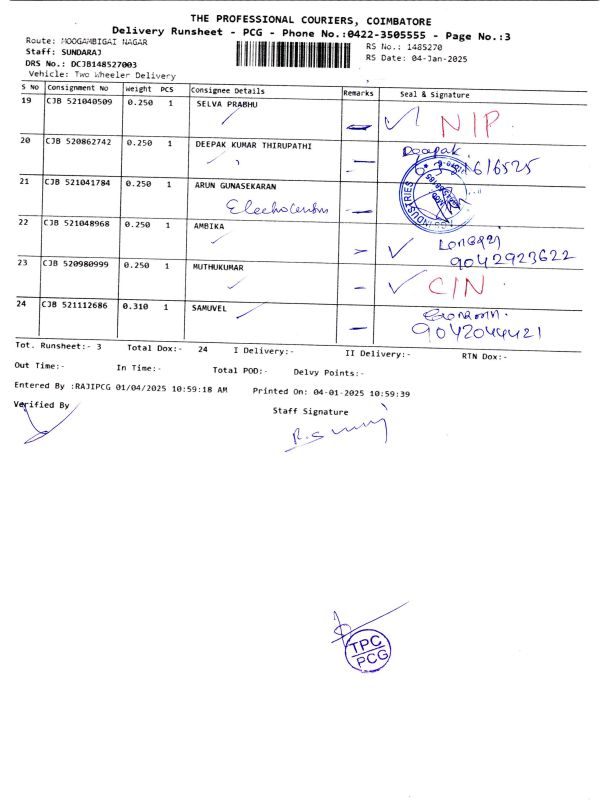 THE PROFESSIONAL COURIERS, COIMBATORE
Delivery Runsheet - PCG - Phone No.:0422-3505555 - Page No.:3
Route: MOOGAMBIGAI NAGAR
RS No.: 1485270
Staff: SUNDARAJ
RS Date: 04-Jan-2025
DRS No.: DCJB148527003
Vehicle: Two Wheeler Delivery
S No Consignment No Weight PCS Consignee Details Remarks Seal & Signature
19 CJB 521040509 0.250 1 SELVA PRABHU NIP
20 CJB 520862742 0.250 1 DEEPAK KUMAR THIRUPATHI Deepak
21 CJB 521041784 0.250 1 ARUN GUNASEKARAN
INDUSTRIES
22 CJB 521048968 0.250 1 AMBIKA
9042923622
23 CJB 520980999 0.250 1 MUTHUKUMAR CIN
24 CJB 521112686 0.310 1 SAMUVEL
9042044421
Tot. Runsheet:- 3 Total Dox:- 24 I Delivery:- II Delivery:- RTN Dox:-
Out Time:- In Time:- Total POD:- Delvy Points:-
Entered By :RAJIPCG 01/04/2025 10:59:18 AM Printed On: 04-01-2025 10:59:39
Verified By
Staff Signature
TPC
PCG